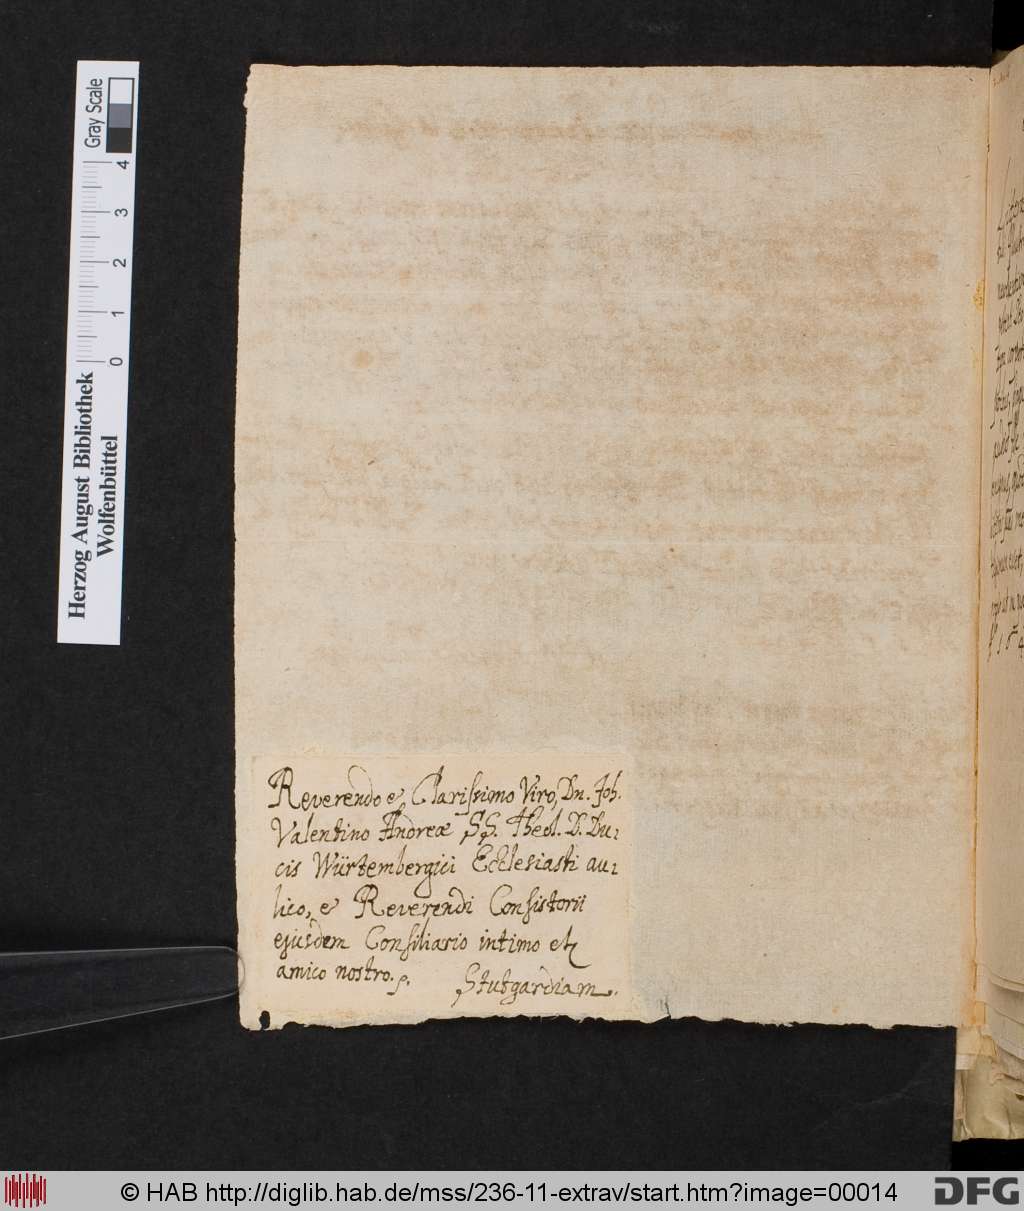 Reverendo et Clarissimo Viro, Dn. Joh.
Valentino Andreæ SS. Theol. D. Du-
cis Würtembergici Ecclesiasti au-
lico, et Reverendi Consistorii
ejusdem Consiliario intimo etc
amico nostro.
Stutgardiam.
Gray Scale
4
3
2
1
0
Herzog August Bibliothek
Wolfenbüttel
© HAB http://diglib.hab.de/mss/236-11-extrav/start.htm?image=00014
DFG